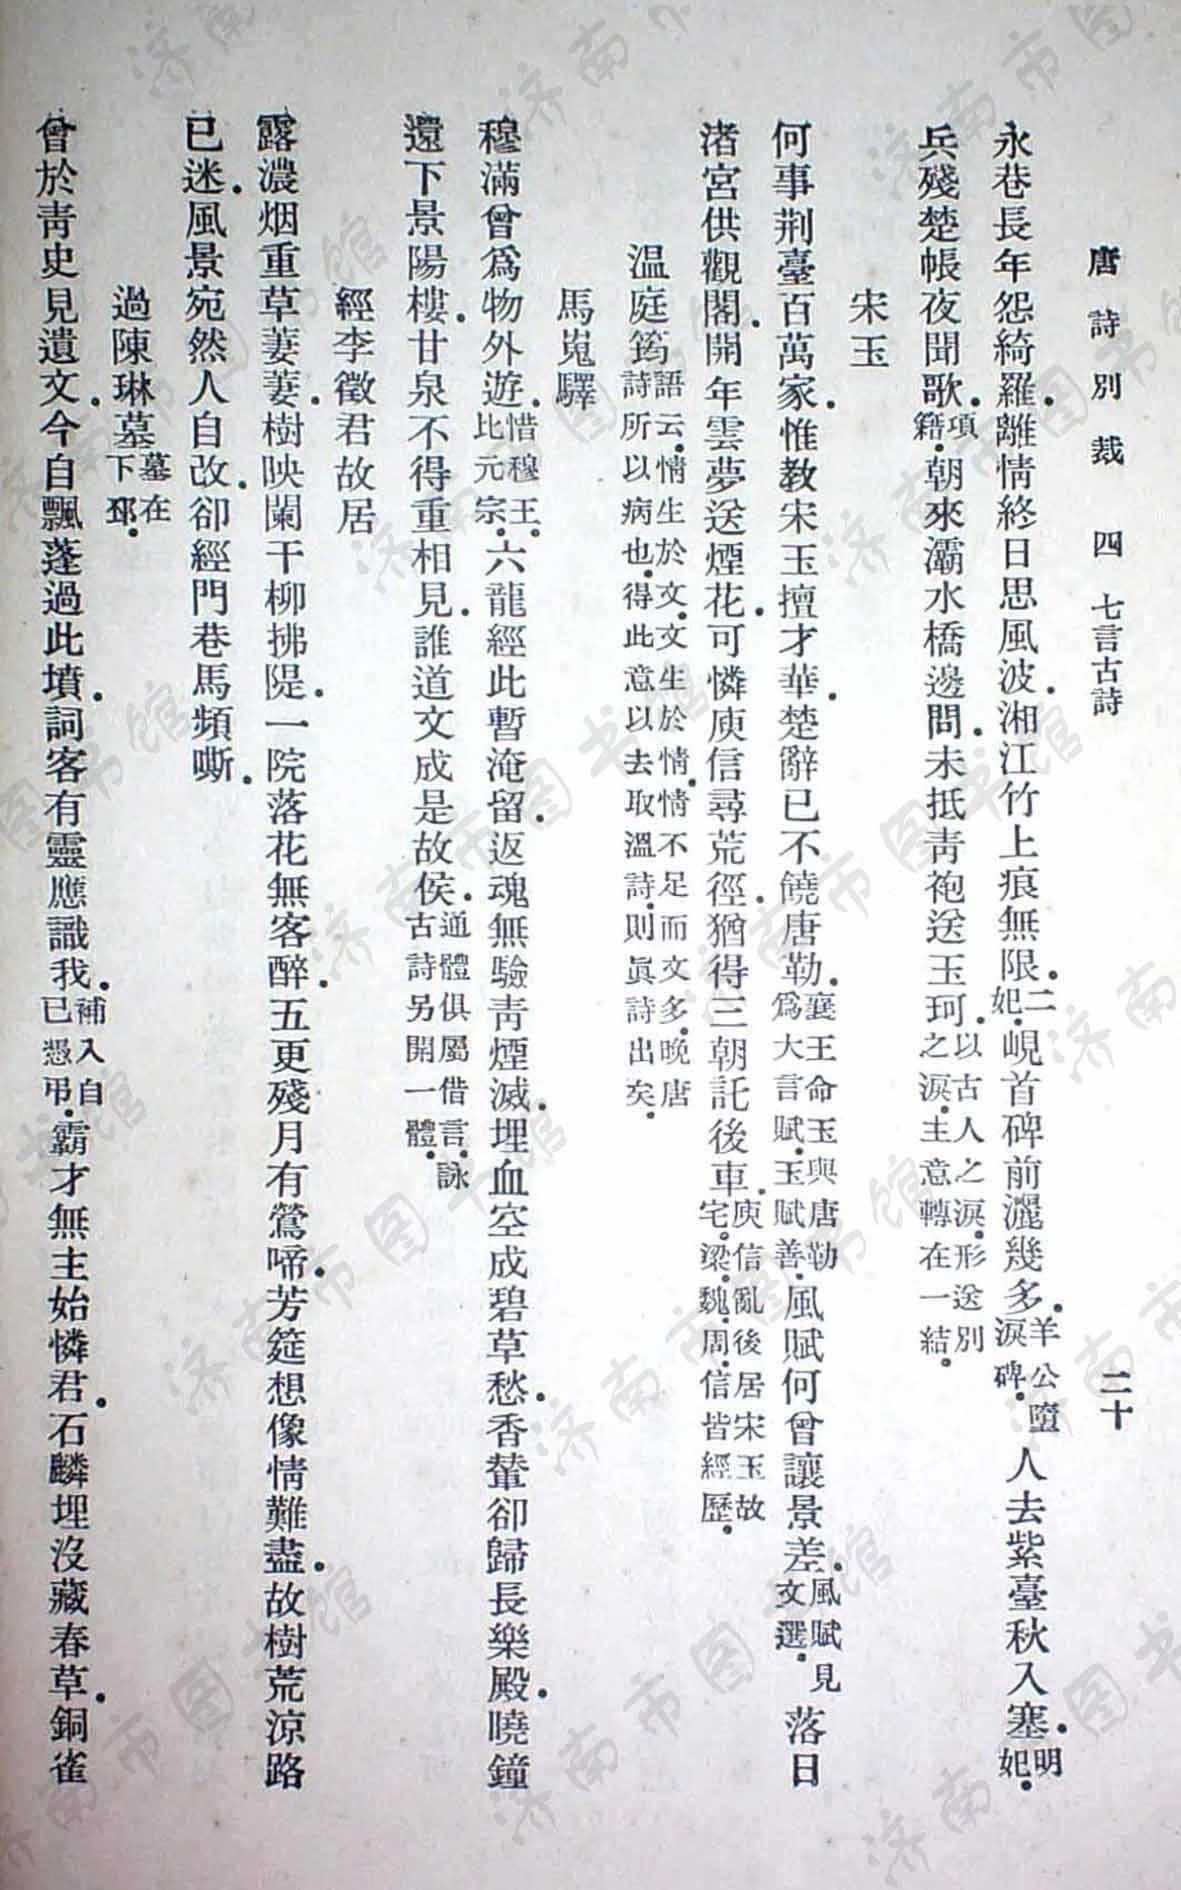 唐詩別裁 四 七言古詩 二十
永巷長年怨綺羅．離情終日思風波．湘江竹上痕無限．二妃．峴首碑前灑幾多．羊公墮淚碑．人去紫臺秋入塞．明妃．
兵殘楚帳夜聞歌．項籍．朝來灞水橋邊問．未抵青袍送玉珂．以古人之淚．形送別之淚．主意轉在一結．
宋玉
何事荆臺百萬家．惟教宋玉擅才華．楚辭已不饒唐勒．襄王命玉與唐勒爲大言賦．玉賦善．風賦何曾讓景差．風賦見文選．落日
渚宮供觀閣．開年雲夢送煙花．可憐庾信尋荒徑．猶得三朝託後車．庾信亂後居宋玉故宅．梁．魏．周．信皆經歷．
温庭筠 語云．情生於文．文生於情．情不足而文多．晚唐詩所以病也．得此意以去取溫詩．則眞詩出矣．
馬嵬驛
穆滿曾爲物外遊．惜穆王．比元宗．六龍經此暫淹留．返魂無驗青煙滅．埋血空成碧草愁．香輦卻歸長樂殿．曉鐘
還下景陽樓．甘泉不得重相見．誰道文成是故侯．通體俱屬借言．詠古詩另開一體．
經李徵君故居
露濃烟重草萋萋．樹映闌干柳拂隄．一院落花無客醉．五更殘月有鶯啼．芳筵想像情難盡．故樹荒涼路
已迷．風景宛然人自改．卻經門巷馬頻嘶．
過陳琳墓 墓在下邳．
曾於靑史見遺文．今自飄蓬過此墳．詞客有靈應識我．補入自已憑弔．霸才無主始憐君．石麟埋沒藏春草．銅雀